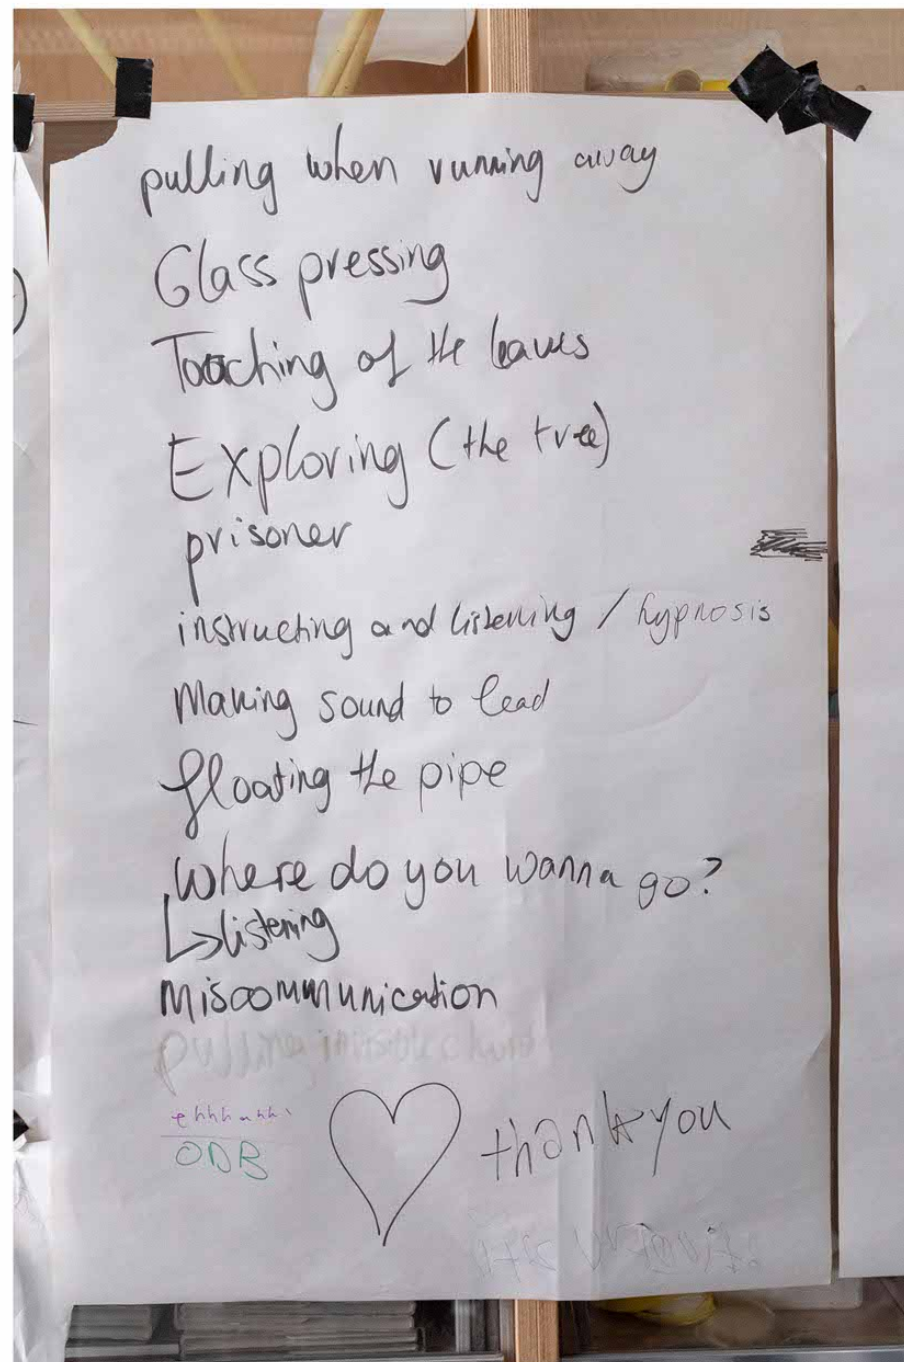 pulling when running away
Glass pressing
Touching of the leaves
Exploring (the tree)
prisoner
instructing and listening / hypnosis
Making sound to lead
floating the pipe
Where do you wanna go?
↳listening
Miscommunication
pulling
ODB
thank you